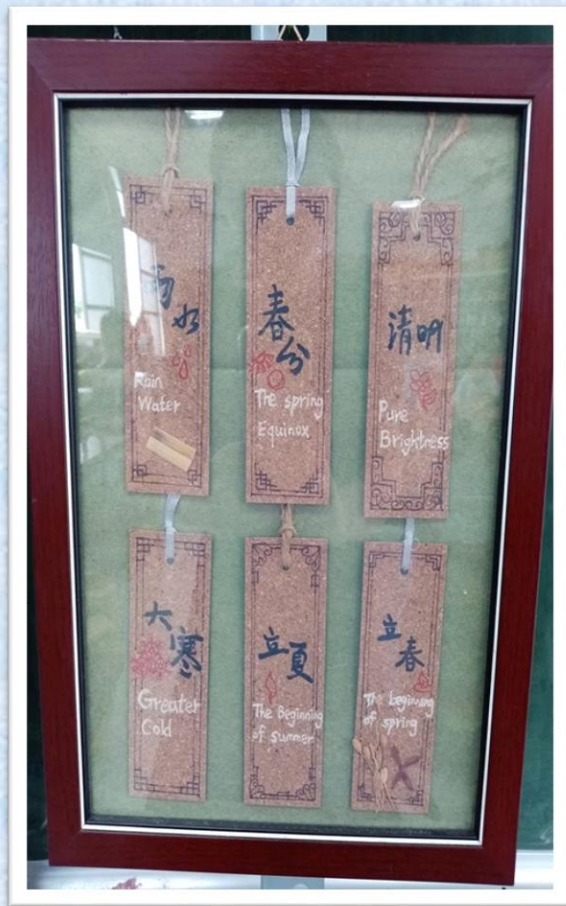 雨水
Rain
Water
春分
The spring
Equinox
清明
Pure
Brightness
大寒
Greater
Cold
立夏
The Beginning
of summer
立春
The beginning
of spring